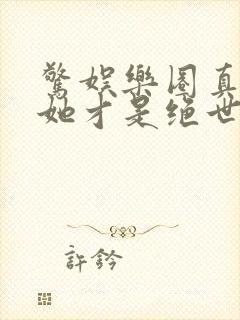 驚娛樂圈真
她才是絕世
許鈐